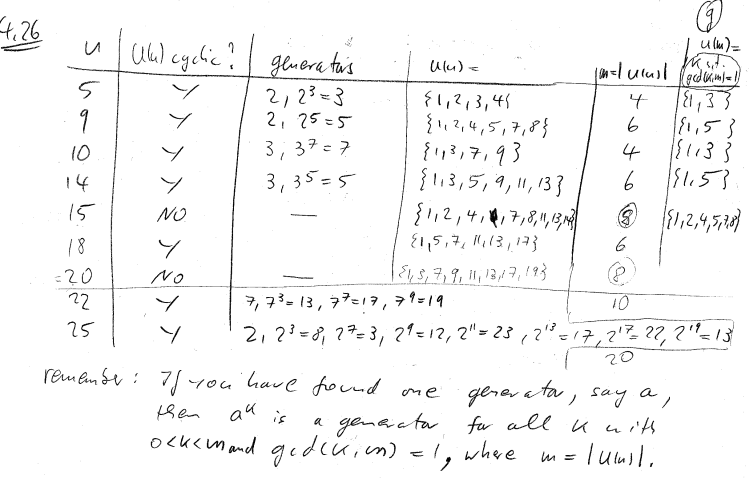 9
4.26
n U(n) cyclic? generators U(n) = m=|U(n)| U(m)= K s.t. gcd(K,m)=1
5 Y 2, 2³=3 {1,2,3,4} 4 {1,3}
9 Y 2, 2⁵=5 {1,2,4,5,7,8} 6 {1,5}
10 Y 3, 3³=7 {1,3,7,9} 4 {1,3}
14 Y 3, 3⁵=5 {1,3,5,9,11,13} 6 {1,5}
15 NO — {1,2,4,7,8,11,13,14} 8 {1,2,4,5,7,8}
18 Y {1,5,7,11,13,17} 6
20 NO — {1,3,7,9,11,13,17,19} 8
22 Y 7, 7³=13, 7⁷=17, 7⁹=19 10
25 Y 2, 2³=8, 2⁷=3, 2⁹=12, 2¹¹=23, 2¹³=17, 2¹⁷=22, 2¹⁹=13
20
remember: If you have found one generator, say a,
then aᵏ is a generator for all K with
0<K<m and gcd(K,m)=1, where m=|U(n)|.